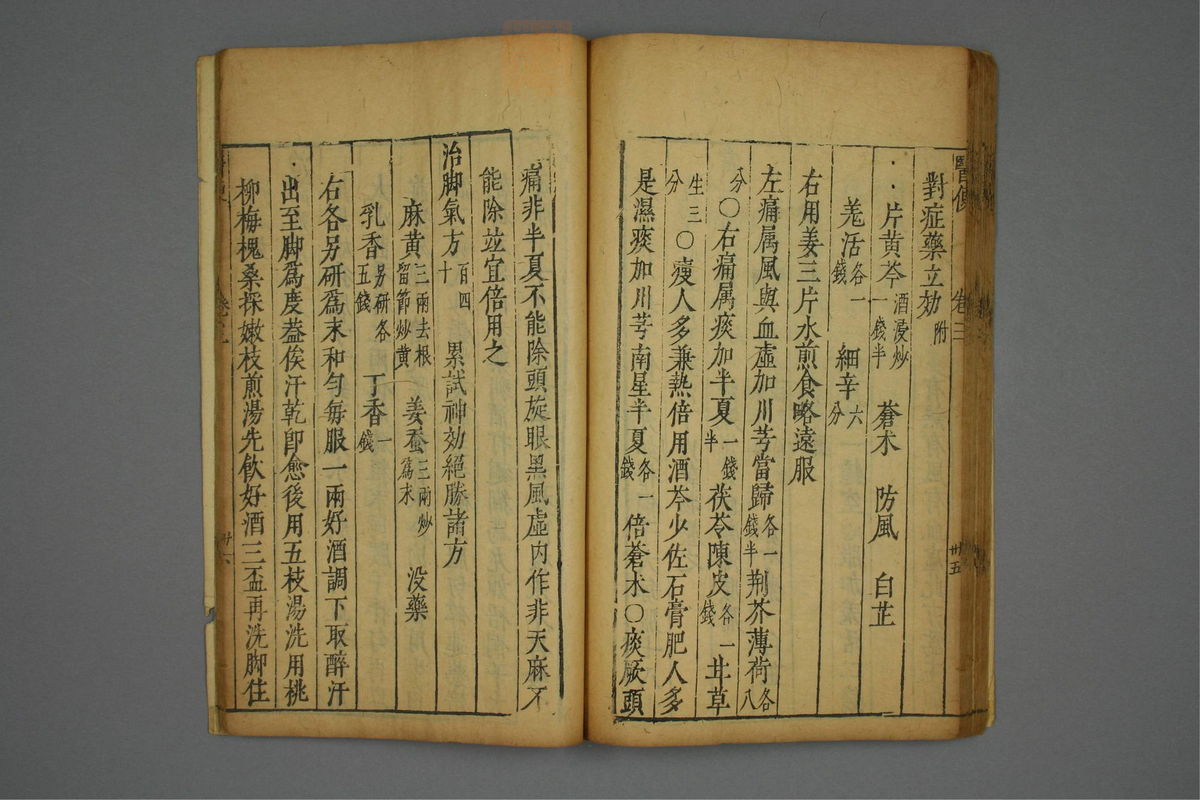 醫便 卷三 卅五
對症藥立効附
片黄芩酒浸炒一錢半 蒼朮 防風 白芷
羗活各一錢 細辛六分
右用姜三片水煎食略遠服
左痛属風與血虚加川芎當歸各一錢半荆芥薄荷各八
分〇右痛属痰加半夏一錢半茯苓陳皮各一錢甘草
生三分〇瘦人多兼熱倍用酒芩少佐石膏肥人多
是濕痰加川芎南星半夏各一錢倍蒼朮〇痰厥頭
痛非半夏不能除頭旋眼黑風虚内作非天麻不
能除並宜倍用之
治脚氣方百四十 累試神効絶勝諸方
麻黄三兩去根留節炒黄 姜蚕三兩炒爲末 没藥
乳香另研各五錢 丁香一錢
右各另研爲末和匀每服一兩好酒調下取醉汗
出至脚爲度葢俟汗乾卽愈後用五枝湯洗用桃
柳梅槐桑採嫩枝煎湯先飲好酒三盃再洗脚住
卷三 卅六